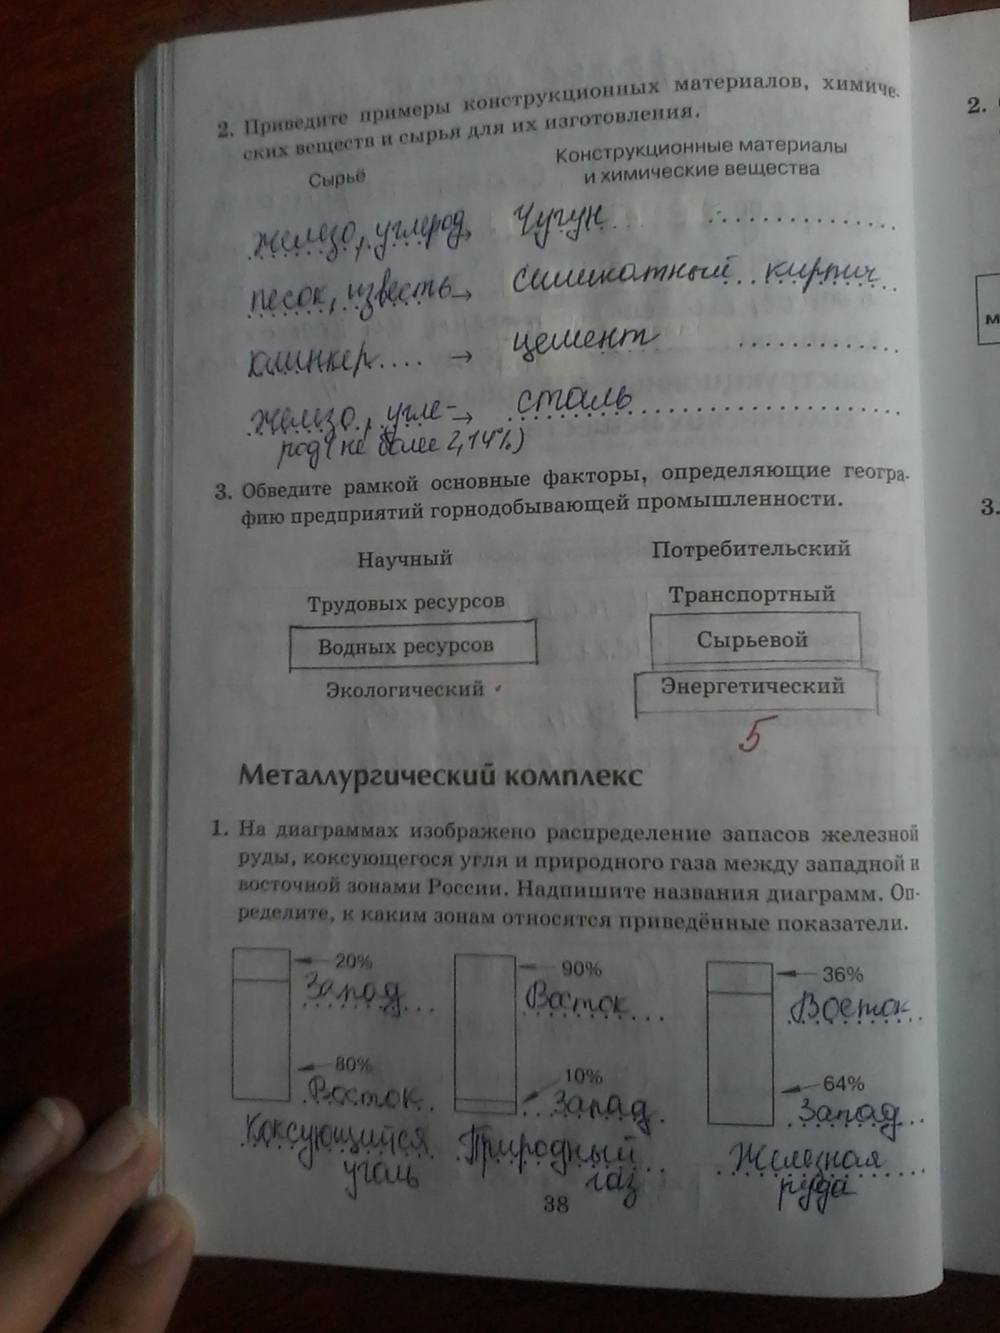 2. Приведите примеры конструкционных материалов, химиче-
ских веществ и сырья для их изготовления.
Сырьё
Конструкционные материалы
и химические вещества
железо, углерод → Чугун
песок, известь → силикатный кирпич
клинкер → цемент
железо, угле- → сталь
род (не более 2,14%)
3. Обведите рамкой основные факторы, определяющие геогра-
фию предприятий горнодобывающей промышленности.
Научный Потребительский
Трудовых ресурсов Транспортный
Водных ресурсов Сырьевой
Экологический Энергетический
5
Металлургический комплекс
1. На диаграммах изображено распределение запасов железной
руды, коксующегося угля и природного газа между западной и
восточной зонами России. Надпишите названия диаграмм. Оп-
ределите, к каким зонам относятся приведённые показатели.
20% 90% 36%
Запад Восток Восток
80% 10% 64%
Восток Запад Запад
Коксующийся Природный Железная
уголь газ руда
38
2.
м
3.